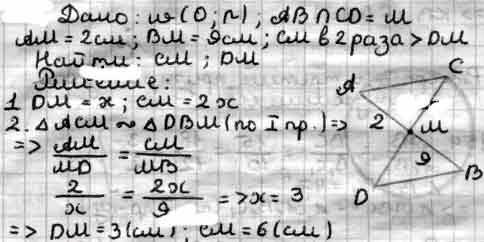 Дано: w(O;r); AB∩CD = M
AM = 2см; BM = 9см; CM в 2 раза > DM
Найти: CM; DM
Решение:
1 DM = x; CM = 2x
2. △ACM ∾ △DBM (по I пр.) =>
=> AM/MD = CM/MB
2/x = 2x/9 => x = 3
=> DM = 3(см); CM = 6(см)
A
C
2
M
9
B
D